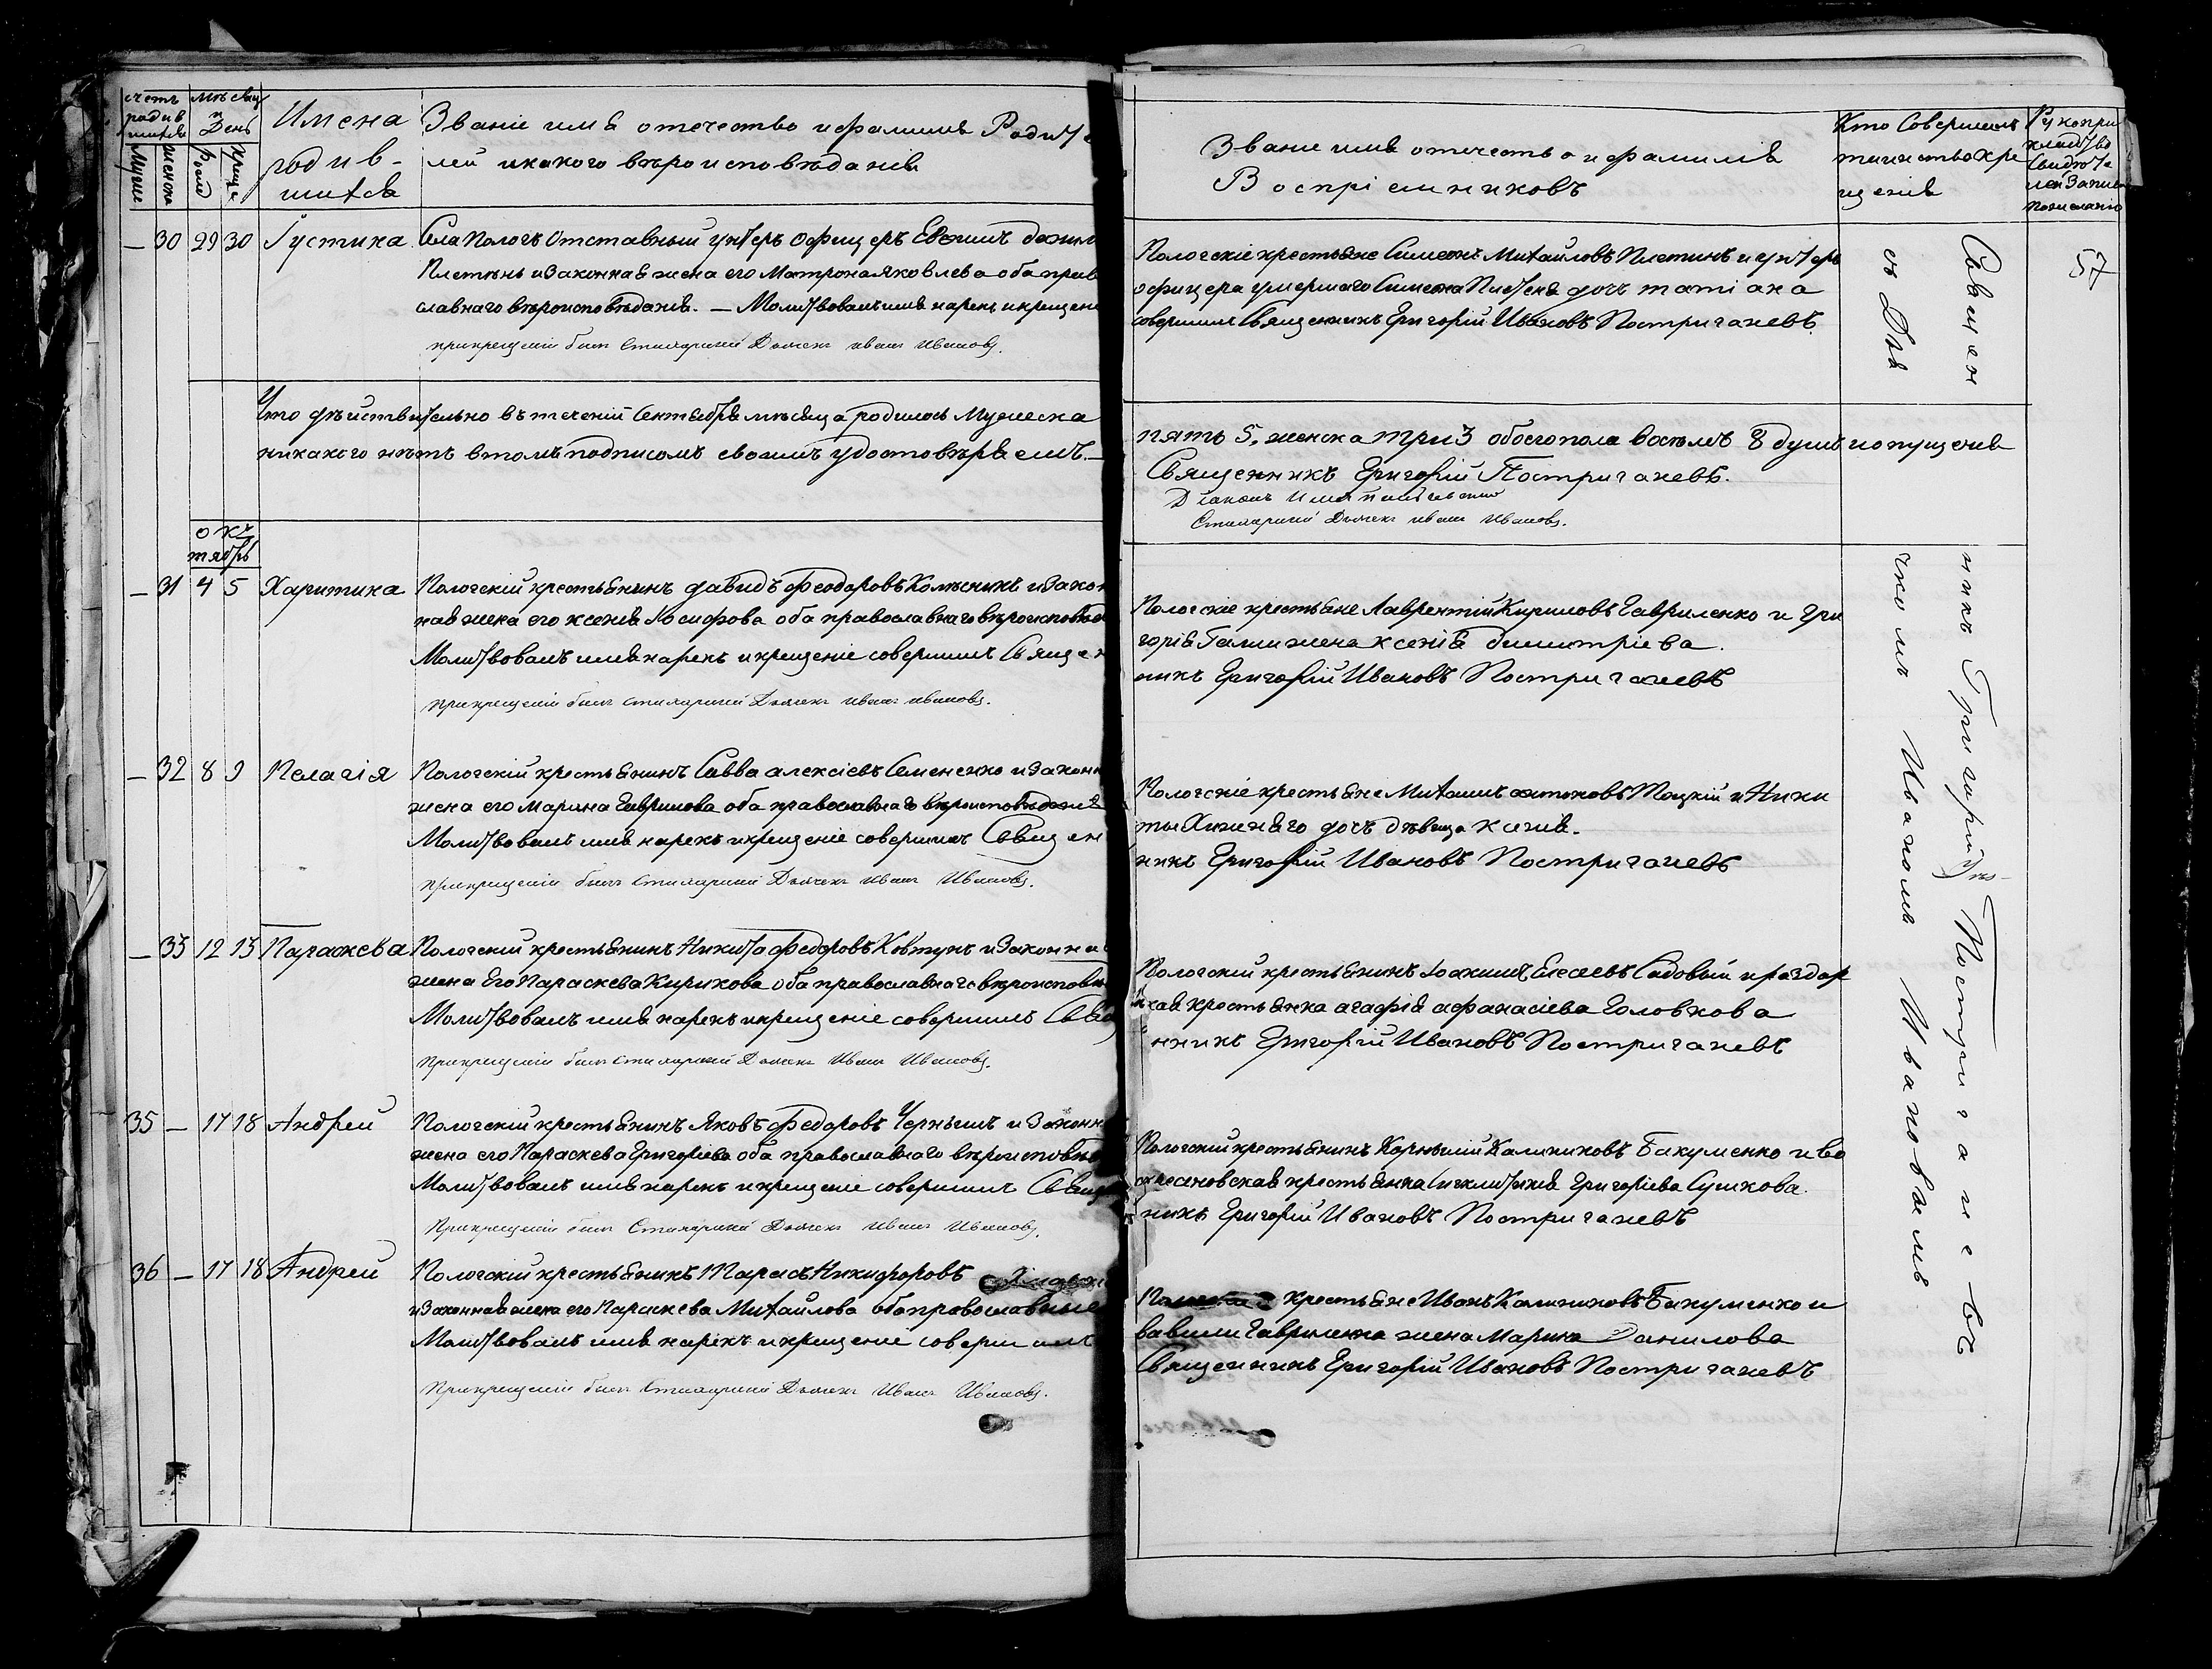 счетъ родив шихся
Мужие женска
мѣсяц и День
Рожд Креще
Имена родив-шихся
Званіе имя отечество и фамилія Родите
лей и какого вѣроисповѣданія
— 30 29 30 Іустина Села Пологъ Отставный унтеръ офицеръ Евѳимъ
Плетѣнь и Законная жена его Матрона Яковлева оба прав
славнаго вѣроисповѣданія. — Молитвовалъ имя нарекъ и крещені
при крещеніи былъ Стихарный Дьячекъ Иванъ Ивановъ.
Что дѣйствительно въ теченіи Сентября мѣсяца родилось Мужеска
никакого нѣтъ в томъ подписомъ своимъ удостовѣряемъ. —
октябрь
— 31 4 5 Харитина Пологскій крестьянинъ Давидъ Феодоровъ Колѣсникъ и Закон
ная жена его Ксенія Іосифова оба православнаго вѣроисповѣд
Молитвовалъ имя нарекъ и крещеніе совершилъ Священ
при крещеніи былъ Стихарный Дьячекъ Иванъ Ивановъ.
— 32 8 9 Пелагія Пологскій крестьянинъ Савва Алексіевъ Семененко и Законн
жена его Марина Гаврилова оба православнаго вѣроисповѣданія
Молитвовалъ имя нарекъ и крещеніе совершилъ Священ
при крещеніи былъ Стихарный Дьячекъ Иванъ Ивановъ.
— 33 12 13 Параскева Пологскій крестьянинъ Никита Федоровъ Ковтунъ и Законна
жена Его Параскева Кирикова оба православнаго вѣроисповѣ
Молитвовалъ имя нарекъ и крещеніе совершилъ Свя
При крещеніи былъ Стихарный Дьячекъ Иванъ Ивановъ.
35 — 17 18 Андрей Пологскій крестьянинъ Яковъ Федоровъ Чернышъ и Законн
жена его Параскева Григоріева оба православнаго вѣроисповѣ
Молитвовалъ имя нарекъ и крещеніе совершилъ Свящ
При крещеніи былъ Стихарный Дьячекъ Иванъ Ивановъ.
36 — 17 18 Андрей Пологскій крестьянинъ Тарасъ Никифоровъ
и Законная жена его Параскева Михайлова оба провославные
Молитвовалъ имя нарекъ и крещеніе совершилъ
При крещеніи былъ Стихарный Дьячекъ Иванъ Ивановъ.
Званіе имя отечество и фамилія
Воспріемниковъ
Кто Совершалъ таинство кре щенія
Рукопри кладство Свидѣте лей Записи по желанію
57
Пологскіе крестьяне Симеонъ Михайловъ Плетинь и унтеръ
офицера умершаго Симеона Плетеня дочь татіана
совершилъ Священникъ Григорій Ивановъ Постригачевъ.
пять 5, женска три 3 обоего пола восемъ 8 душъ и опущенія
Священникъ Григорій Постригачевъ.
Діаконъ
Стихарный Дьячекъ Иванъ Ивановъ.
Пологскіе крестьяне Лаврентій Кириловъ Гавриленко и Гри
горія Галки жена Ксенія Димитріева.
никъ Григорій Ивановъ Постригачевъ
Пологскіе крестьяне Михаилъ Антоновъ Тоцкій и Ники
ты Хижняго дочь дѣвица Ксенія.
никъ Григорій Ивановъ Постригачевъ
Пологскій крестьянинъ Іоакимъ Елсеевъ Садовый и раздор
ская крестьянка агафія афанасіева Головкова
нникъ Григорій Ивановъ Постригачевъ
Пологскій крестьянинъ Корнилій Калениковъ Бакуменко и во
знесеновская крестьянка Григоріева Сушкова.
никъ Григорій Ивановъ Постригачевъ
крестьяне Иванъ Калениковъ Бакуменко и
вавили Гавриленка жена Марина Данилова
Священникъ Григорій Ивановъ Постригачевъ
Священникъ Григорій Постригачевъ
съ Дьячкомъ Иваномъ Ивановымъ